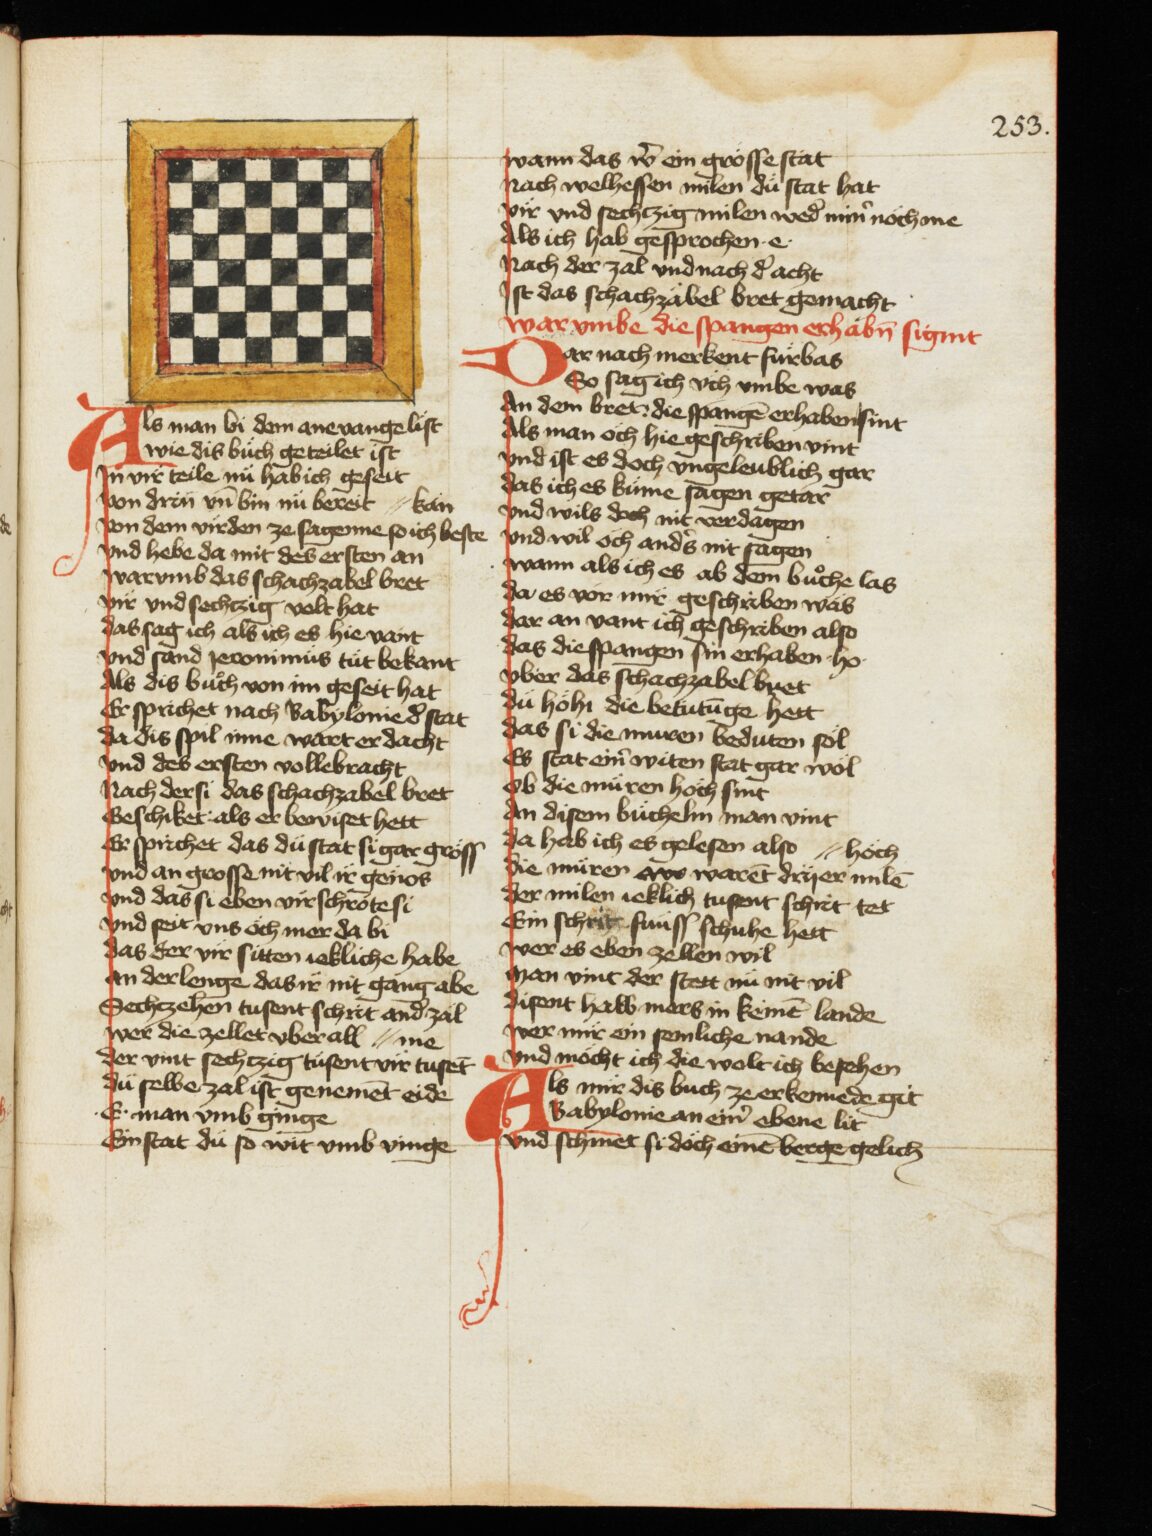 253.
Als man bi dem anevange list
wie dis bůch geteilet ist
In vir teile nu hab ich geseit
von drin vn̄ bin nu bereit // kan
von dem virden ze sagenne so ich beste
vnd hebe da mit des ersten an
warvmb das schachzabel bret
vir vnd sechczig velt hat
das sag ich als ich es hie vant
vnd sand Jeronimus tut bekant
Als dis bůch von im geseit hat
Er sprichet nach Babylonie d' stat
da dis spil inne wart erdacht
vnd des ersten vollebracht
Nach der si das schachzabel bret
Geschiket als er bewiset hett
Er sprichet das dü stat si gar gross
vnd an grosse nit vil ir genos
vnd das si eben virschrote si
vnd seit vns och mer da bi
das der vir sitten iekliche habe
an der lenge das ir nit gang abe
Sechzehen tusent schrit and' zal
wer die zellet vber all // me
der vint sechczig tusent vir tusēt
dü selbe zal ist genemēt eide
E man vmb ginge
Ein stat dü so wit vmb vinge
wann das w' ein grosse stat
Nach welhessen milen dü stat hat
vir vnd sechczig milen wed' min' noch me
Als ich hab gesprochen · e ·
Nach der zal vnd nach d' acht
Ist das schachzabel bret gemacht
war vmbe die spangen erhabn̄ sigint
Dar nach merkent fürbas
So sag ich vch vmbe was
An dem bret die spangē erhaben sint
Als man och hie geschriben vint
vnd ist es doch vngeleublich gar
das ich es kume sagen getar
vnd wils doch nit verdagen
vnd wil och and's nit sagen
wann als ich es ab dem bůche las
da es vor mir geschriben was
dar an vant ich geschriben also
das die spangen sin erhaben ho
vber das schachzabel bret
dü höhi die betutūge hett
das si die muren beduten sol
Es stat ein' witen stat gar wol
ob die muren hoch sint
An disem büchelin man vint
da hab ich es gelesen also // hoch
die muren warēt drijer milē
der milen ieklich tusent schrit tet
Ein schrit fuuff schuhe hett
wer es eben zellen wil
man vint der stett nu nit vil
disent halb mers in keinē lande
wer mir ein semliche nande
vnd möcht ich die wolt ich besehen
Als mir dis buch ze erkennede git
Babylonie an ein' ebene lit
vnd schinet si doch einē berge gelich